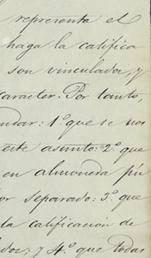 represente el
haga la califica
son vinculados, y
caracter. Por tanto
ndar: 1º que se nos
este asunto: 2º que
en almoneda pú
or separado: 3º que
la calificación de
dos; y 4º que todas